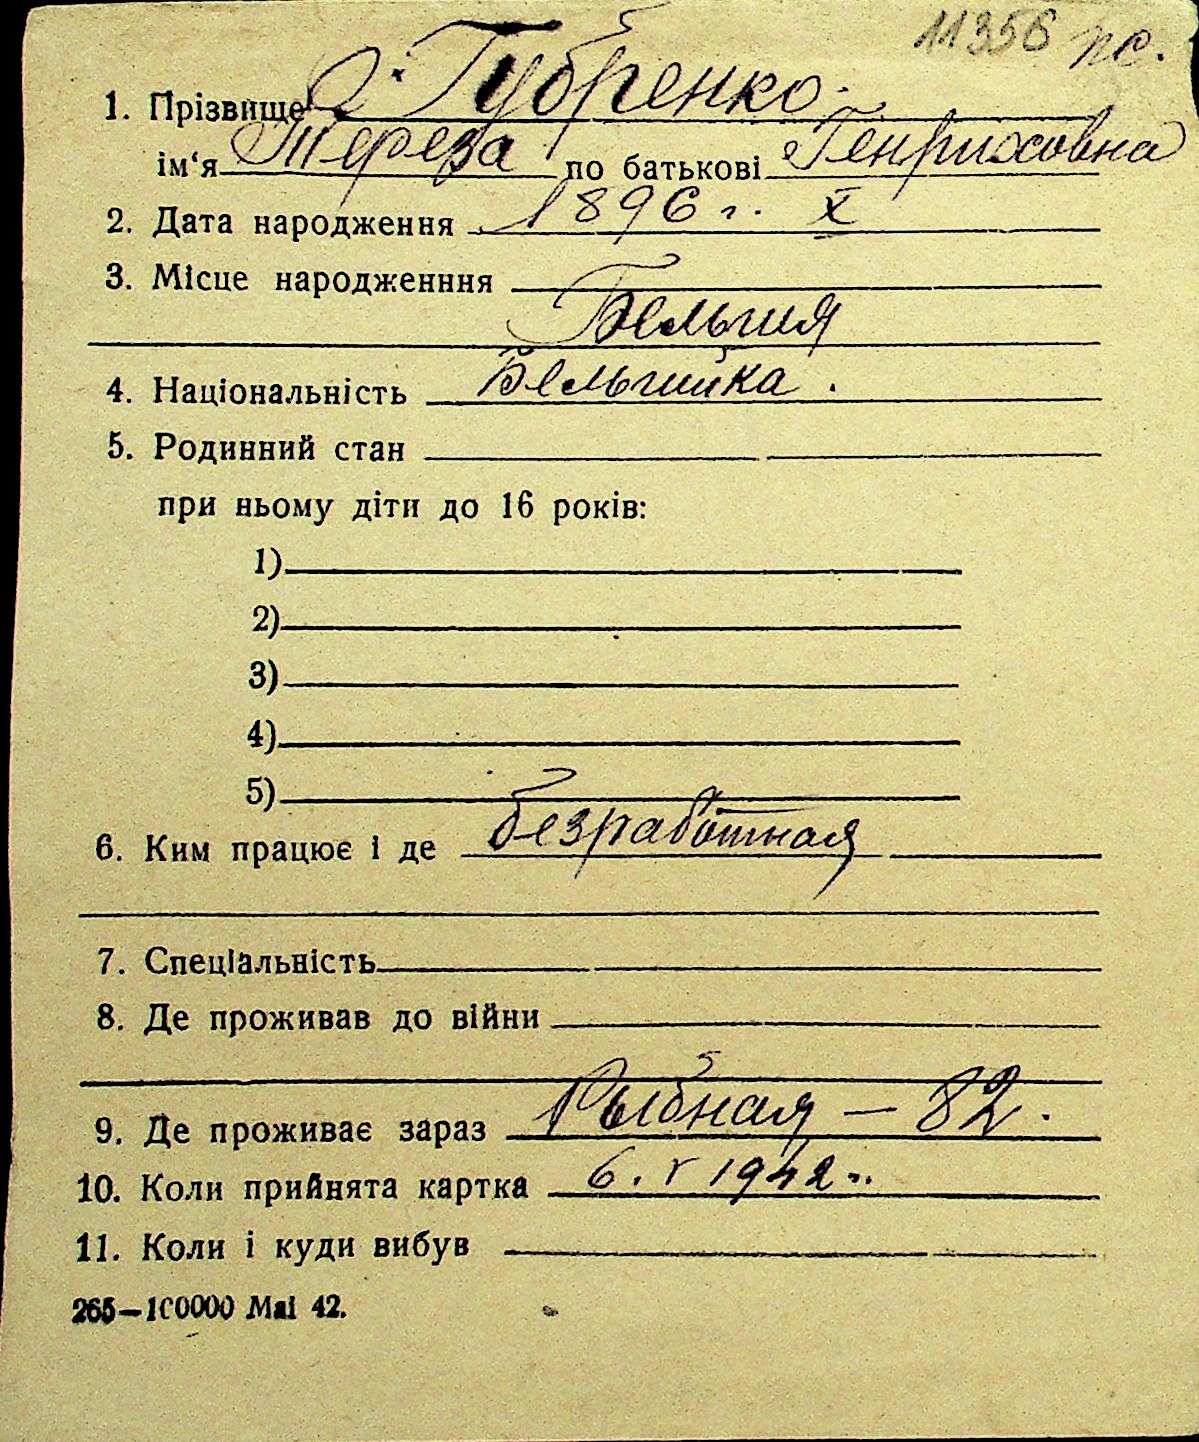 11356 пс.
1. Прізвище Губренко
ім‘я Тереза по батькові Генриховна
2. Дата народження 1896 г. X
3. Місце народженння
Бельгия
4. Національність Бельгийка.
5. Родинний стан
при ньому діти до 16 років:
1)
2)
3)
4)
5)
6. Ким працює і де безработная
7. Спеціальність
8. Де проживав до війни
9. Де проживає зараз Рыбная — 82.
10. Коли прийнята картка 6. V 1942 г.
11. Коли і куди вибув
265—100000 Mai 42.